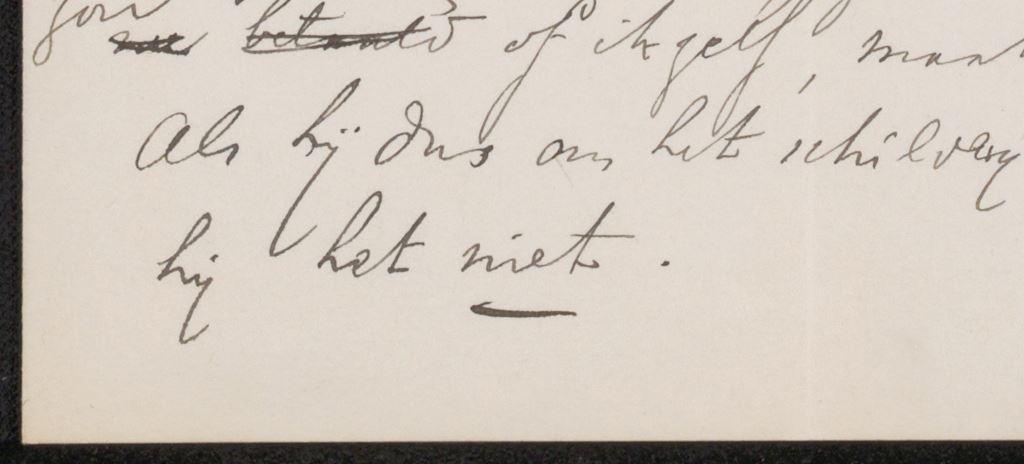 betaald of ik zelf, maar
Als hij dus om het schilderij
hij het niet.